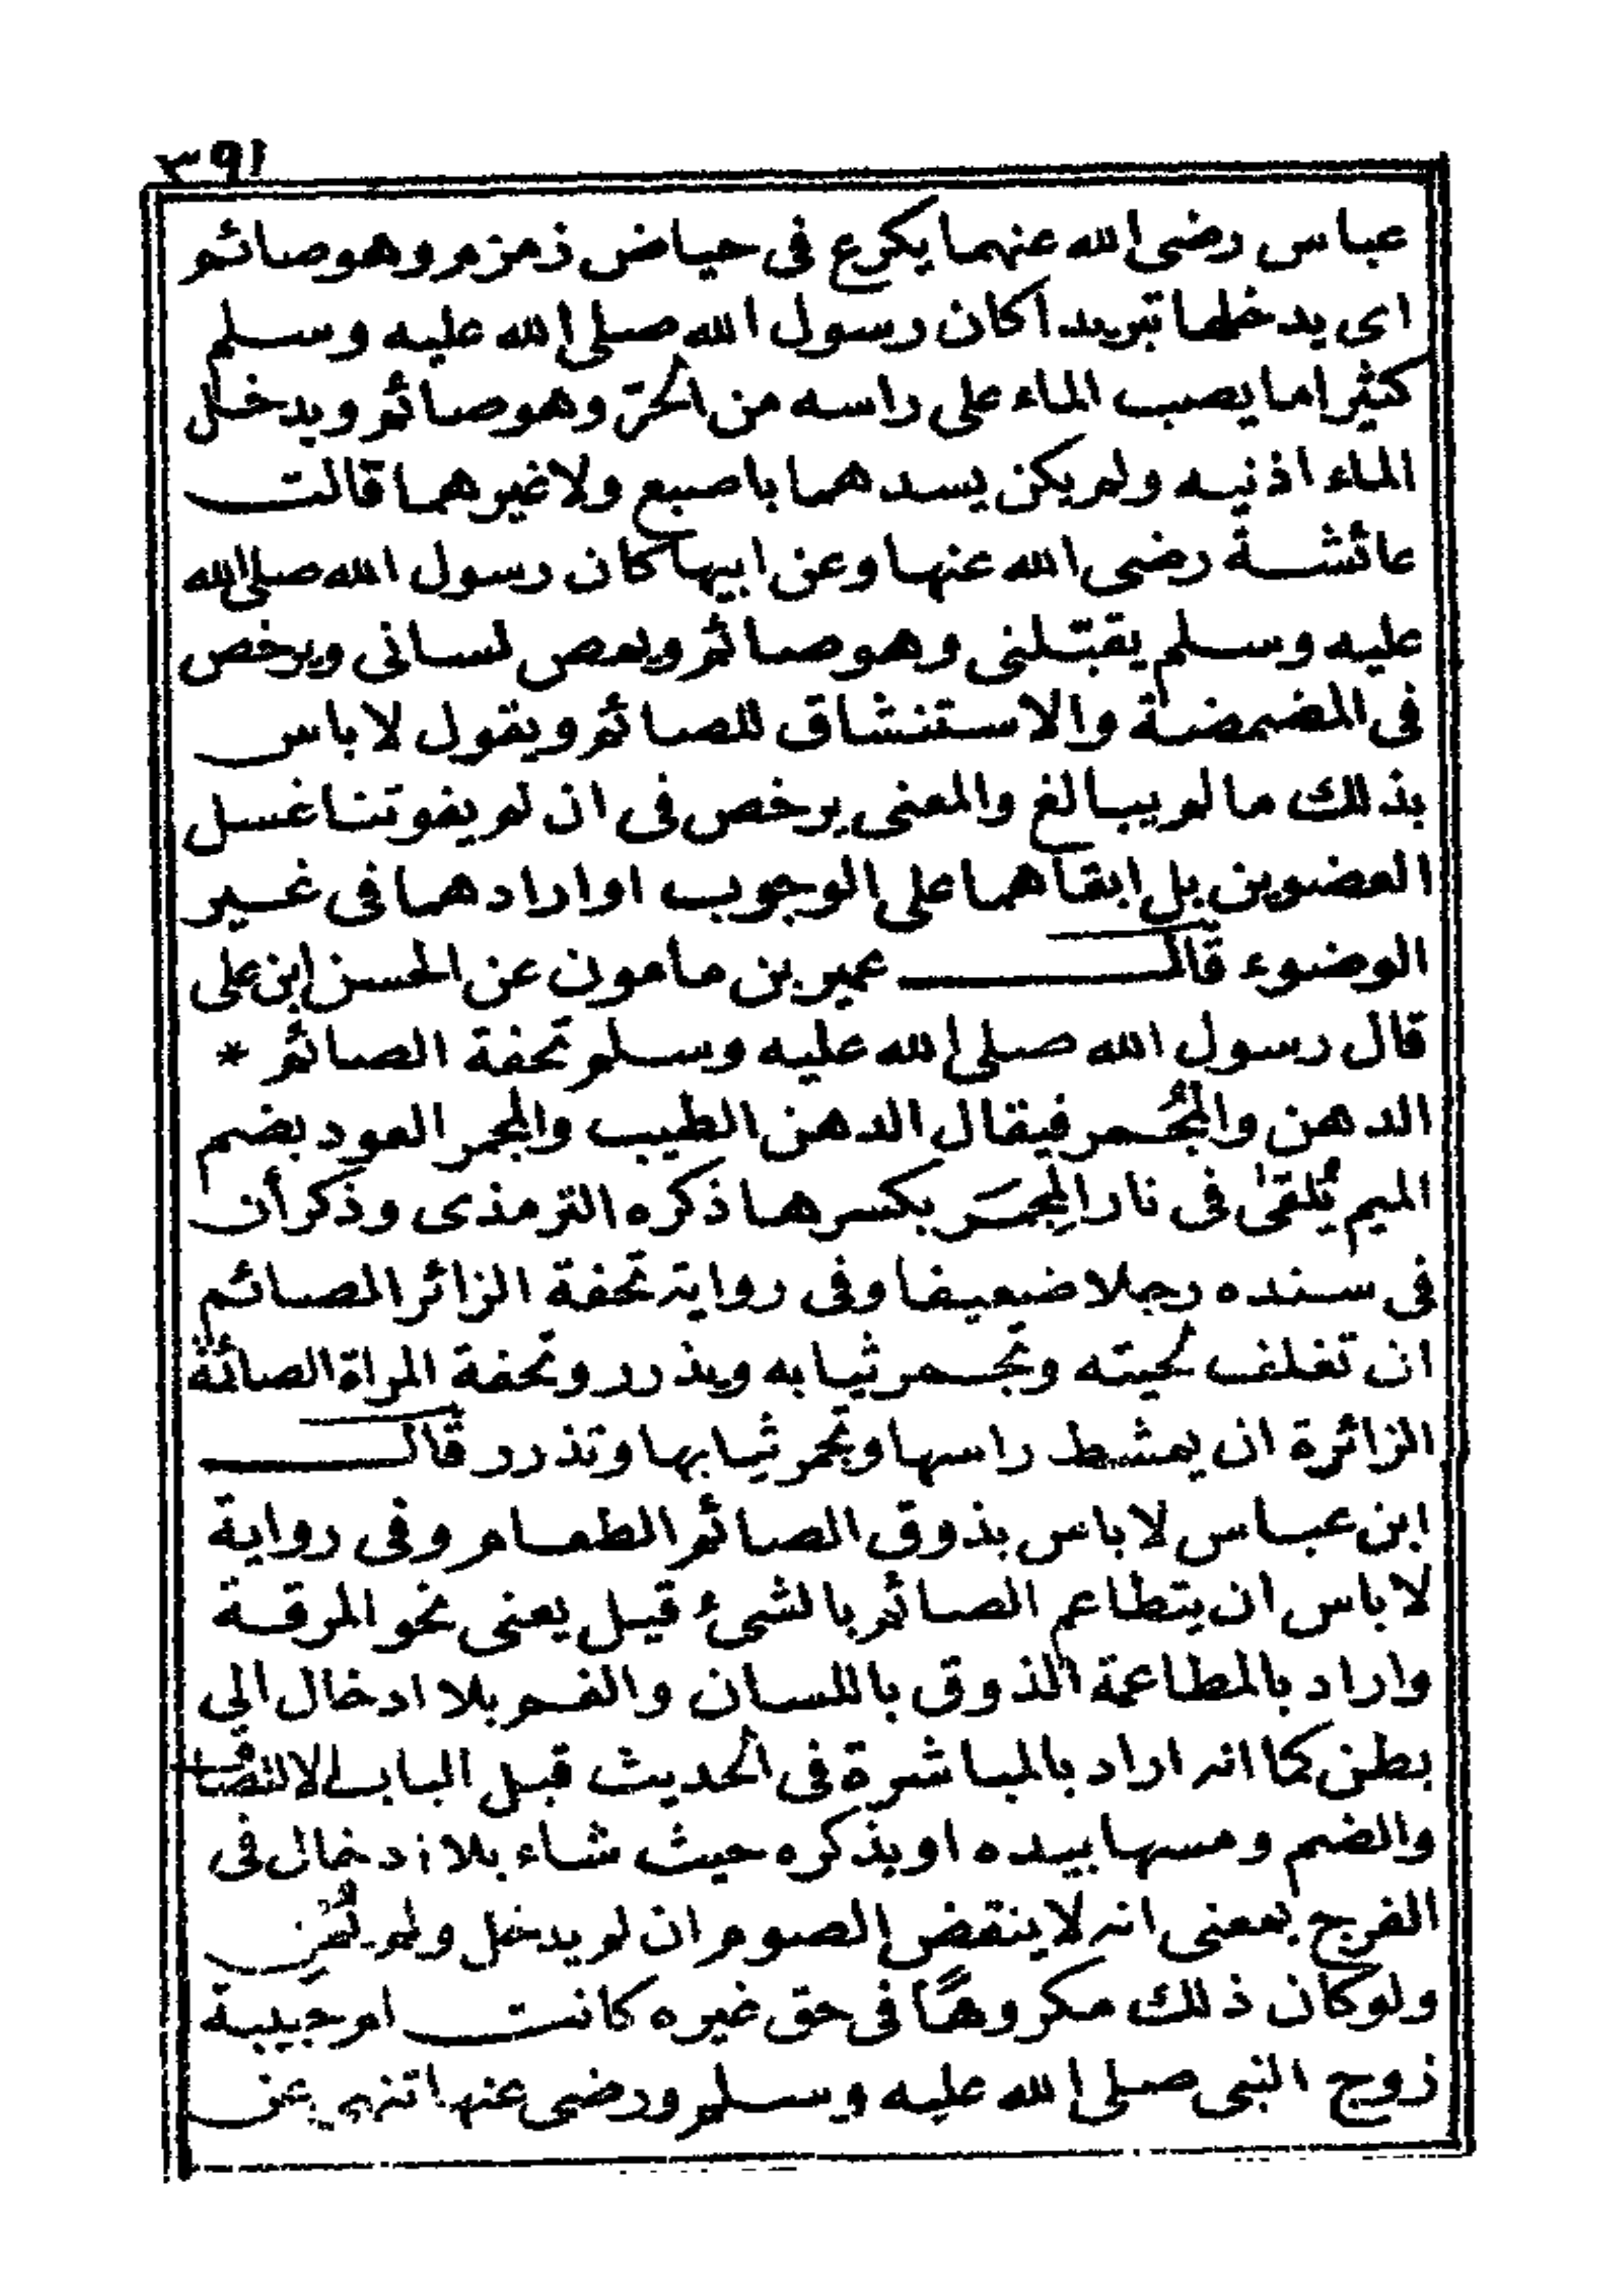 ٣٩١
عباس رضى الله عنهما يكرع فى حياض زمزم وهو صائم
اى يدخلها تبريدا كان رسول الله صلى الله عليه وسلم
كثيرا ما يصب الماء على راسه من الحرّ وهو صائم ويدخل
الماء اذنيه ولم يكن يسدهما باصبع ولا غيرهما قالت
عائشة رضى الله عنها وعن ابيها كان رسول الله صلى الله
عليه وسلم يقبّلنى وهو صائم ويمص لسانى ويرخص
فى المضمضة والاستنشاق للصائم ويقول لا باس
بذلك ما لم يبالغ والمعنى يرخص فى ان لم يفوتنا غسل
العضوين بل ابقاهما على الوجوب او ارادهما فى غير
الوضوء قال عمير بن مامون عن الحسن ابن على
قال رسول الله صلى الله عليه وسلم تحفة الصائم *
الدهن والمُجمر فيقال الدهن الطيب والمجمر العود بضم
الميم تُلقى فى نار المِجمَر بكسرها ذكره الترمذى وذكر أن
فى سنده رجلا ضعيفا وفى رواية تحفة الزائر الصائم
ان تغلف لحيته وتجمر ثيابه ويذرر وتحفة المراة الصائمة
الزائرة ان يمشط راسها وتجمر ثيابها وتذرر قال
ابن عباس لا باس بذوق الصائم الطعام وفى رواية
لا باس ان يتطاعم الصائم بالشىء قيل يعنى نحو المرقة
واراد بالمطاعمة الذوق باللسان والفم بلا ادخال الى
بطن كما انه اراد بالمباشرة فى الحديث قبل الباب الالتصاق
والضم ومسها بيده او بذكره حيث شاء بلا ادخال فى
الفرج بمعنى انه لا ينقض الصوم ان لم يدخل ولم يُمْنِ
ولو كان ذلك مكروهًا فى حق غيره كانت ام حبيبة
زوج النبى صلى الله عليه وسلم ورضى عنها تنهى عن